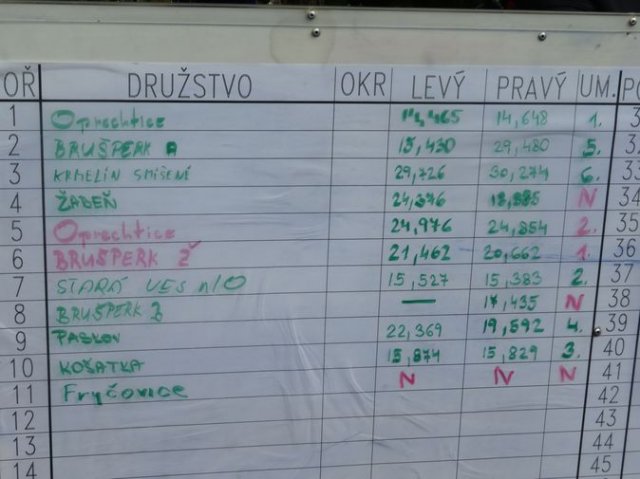 POŘ DRUŽSTVO OKR LEVÝ PRAVÝ UM.
1 Oprechtice 14,465 14,648 1.
2 BRUŠPERK A 15,430 29,480 5. 32
3 KRMELÍN SMÍŠENÍ 29,726 30,274 6. 33
4 ŽABEŇ 24,376 18,885 N 34
5 Oprechtice 24,976 24,854 2. 35
6 BRUŠPERK Ž 21,462 20,662 1. 36
7 STARÁ VES n/O 15,527 15,383 2. 37
8 BRUŠPERK B — 17,435 N 38
9 PASKOV 22,369 19,592 4. 39
10 KOŠATKA 15,874 15,829 3. 40
11 Fryčovice N N N 41
12 42
13 43
14 44
45